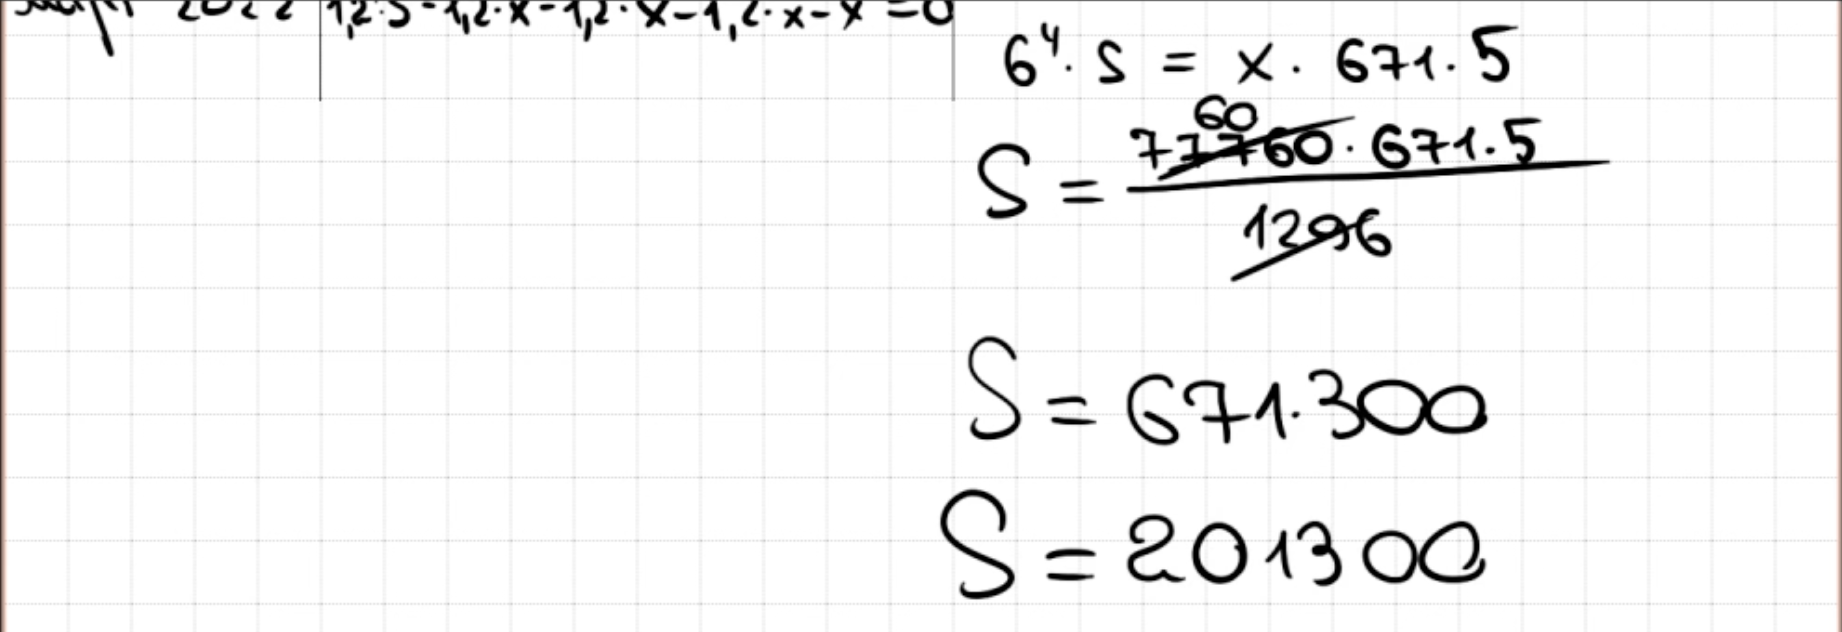 2022 1,2⁴·S-1,2³·x-1,2²·x-1,2·x-x=0
6⁴·S = x·671·5
S = 77760·671·5
60
1296
S = 671·300
S = 201300